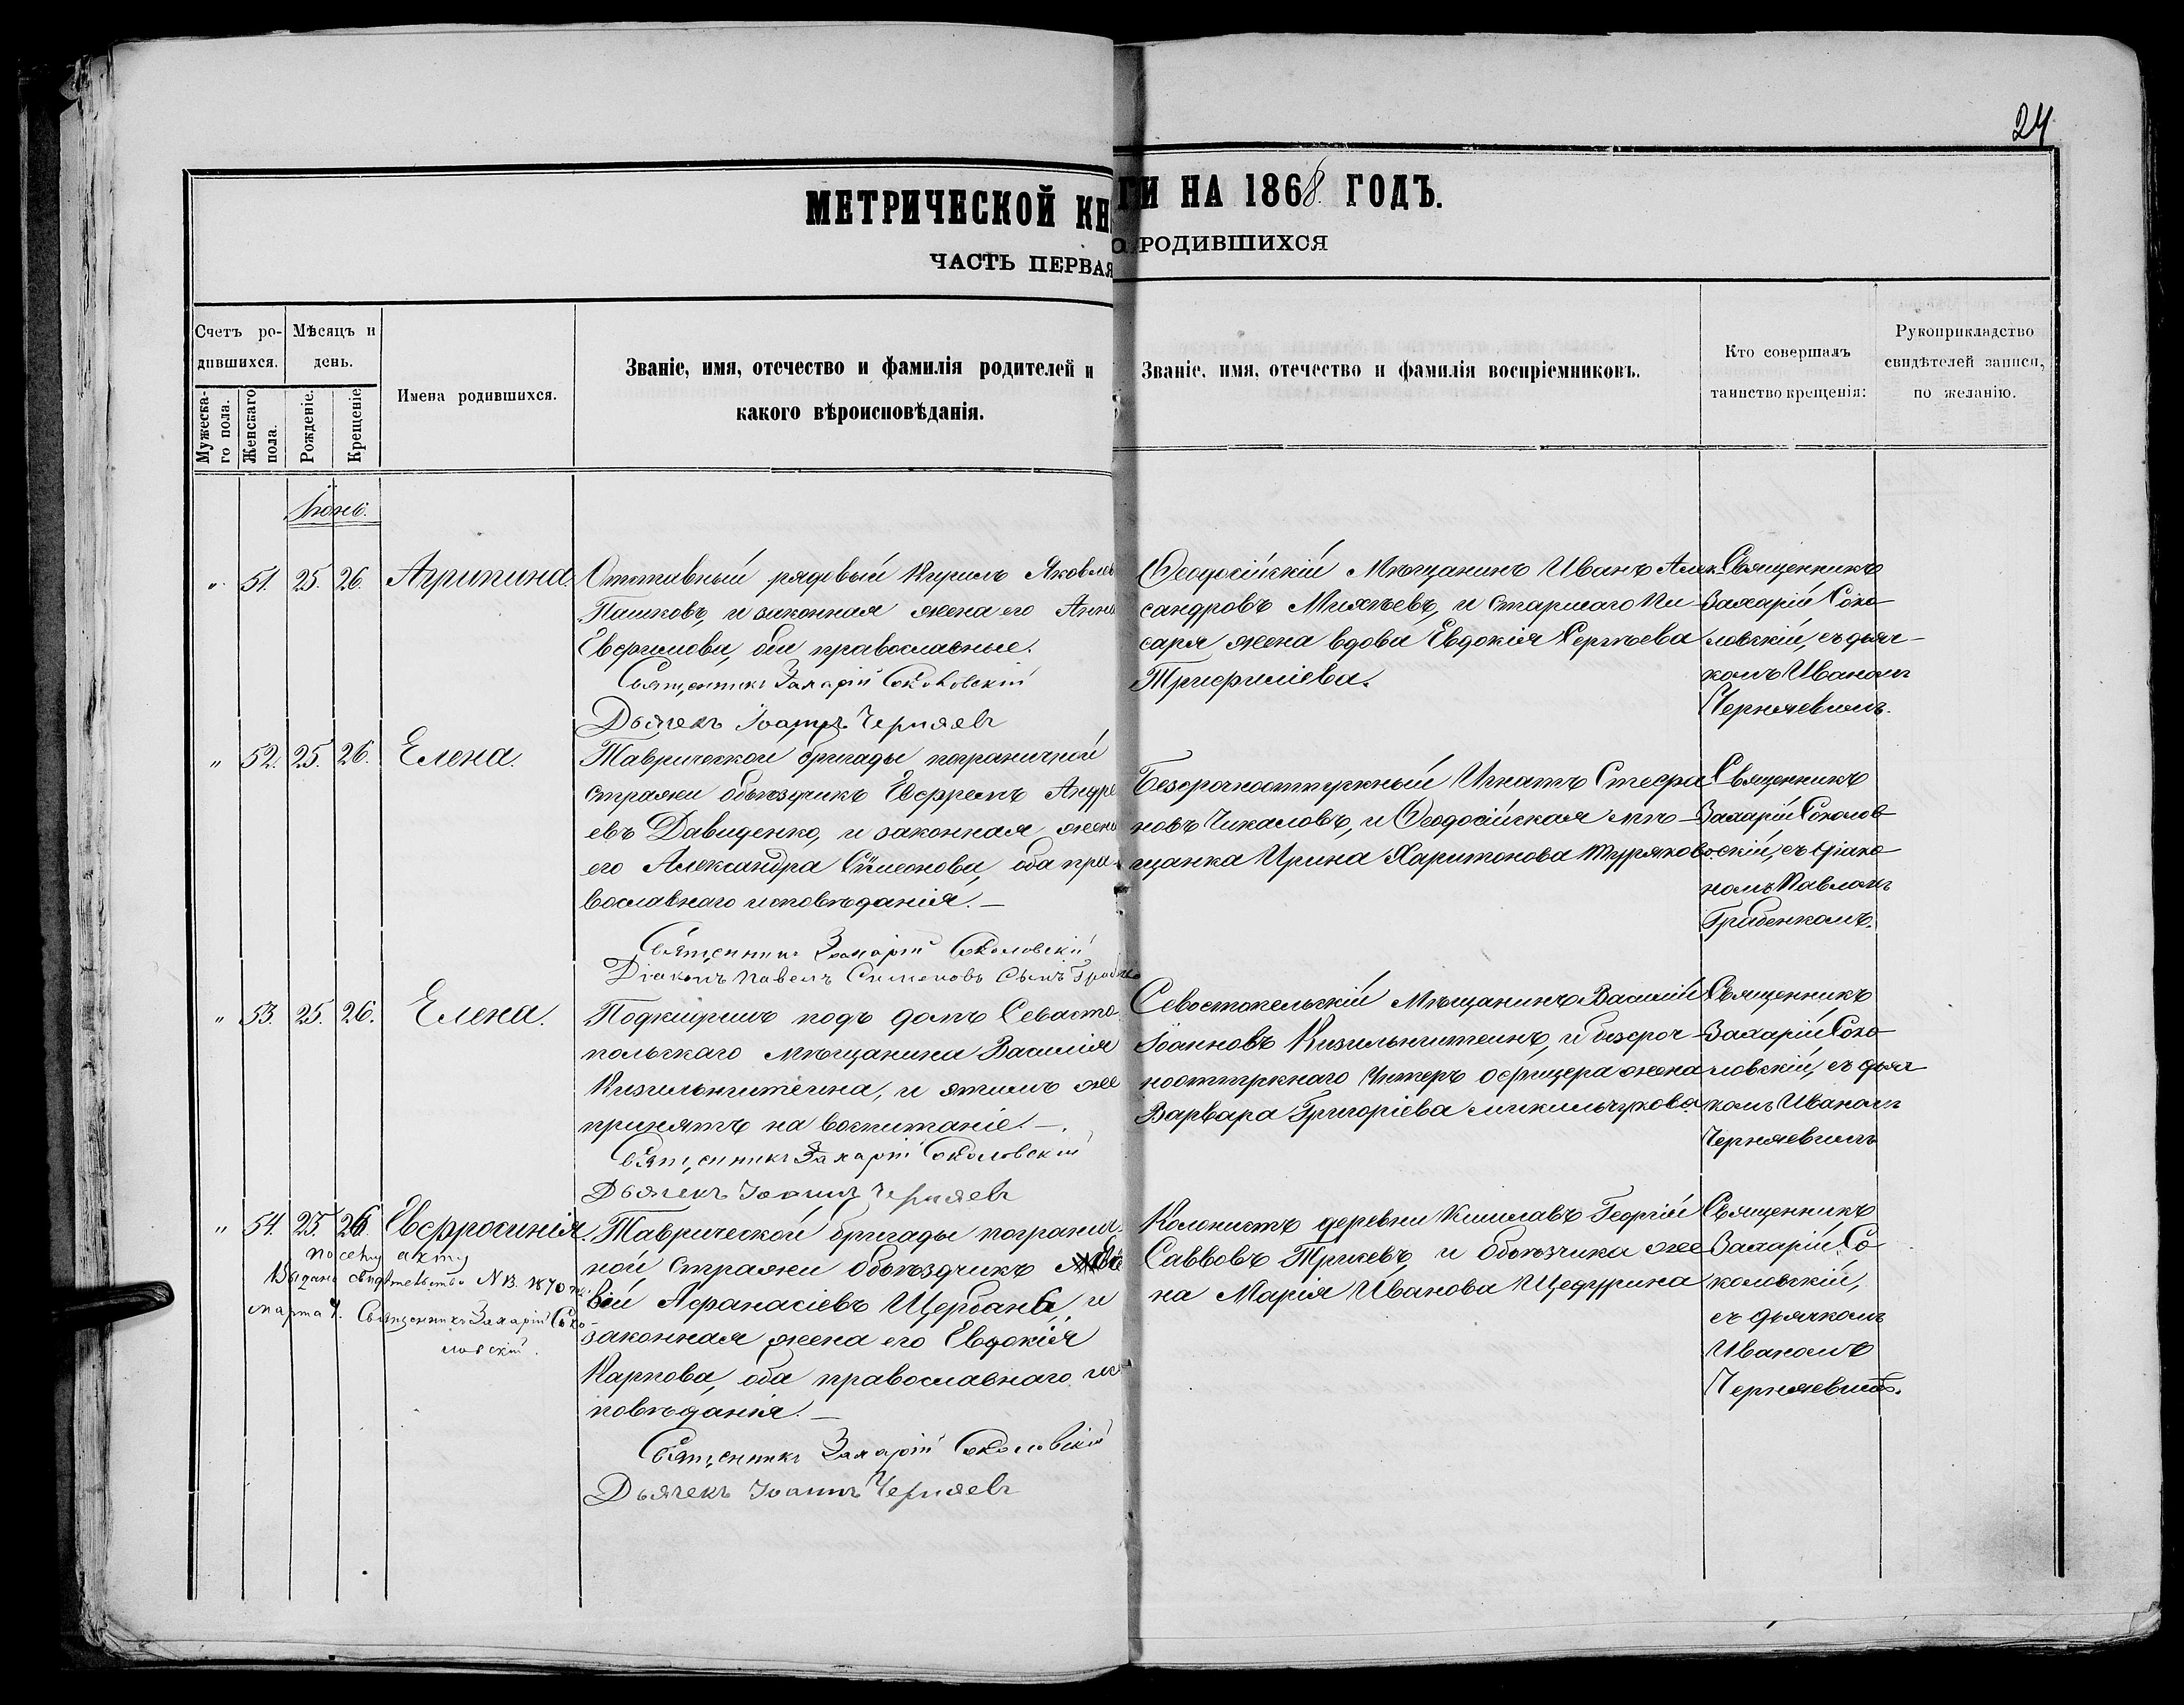 24
МЕТРИЧЕСКОЙ КНИГИ НА 1868 ГОДЪ.
ЧАСТЬ ПЕРВАЯ О РОДИВШИХСЯ
Счетъ ро-
дившихся.
Мужеска-
го пола.
Женскаго
пола.
Мѣсяцъ и
день.
Рожденіе.
Крещеніе.
Имена родившихся.
Званіе, имя, отечество и фамилія родителей и
какого вѣроисповѣданія.
Званіе, имя, отечество и фамилія воспріемниковъ.
Кто совершалъ
таинство крещенія:
Рукоприкладство
свидѣтелей записи,
по желанію.
Іюнь.
" 51. 25. 26. Агрипина.
Отставный рядовый Кирилъ Яковлевъ
Пашковъ, и законная жена его Анна
Евфимова, оба православные.
Священникъ Захарій Соколовскій
Дьячекъ Іоаннъ Черняевъ
Ѳеодосійскій Мѣщанинъ Иванъ Алек-
сандровъ Михѣевъ, и старшаго Пи-
саря жена вдова Евдокія Сергѣева
Трифиліева.
Священникъ
Захарій Соко-
ловскій, съ дьяч-
комъ Иваномъ
Черняевымъ.
" 52. 25. 26. Елена.
Таврической бригады пограничной
стражи объѣздчикъ Ефремъ Андре
евъ Давиденко, и законная жена
его Александра Симеонова, оба пра-
вославнаго исповѣданія. —
Священникъ Захарій Соколовскій
Діаконъ Павелъ Симеоновъ Сынъ
Безсрочноотпускный Игнатъ Стефа
новъ Чикаловъ, и Ѳеодосійская мѣ-
щанка Ирина Харитонова
Священникъ
Захарій Соколов-
скій, съ діако-
номъ Павломъ
Грабенкомъ.
" 53. 25. 26. Елена.
Подкидышъ подъ домъ Севасто-
польскаго Мѣщанина Василія
Кизильнитеина, и этимъ же
принятъ на воспитаніе. —
Священникъ Захарій Соколовскій
Дьячекъ Іоаннъ Черняевъ
Севостопельскій Мѣщанинъ Василій
Іоанновъ Кизильнитеинъ, и безсроч-
ноотпускнаго Унтеръ офицера жена
Варвара Григоріева
Священникъ
Захарій Соко-
ловскій, съ дьяч
комъ Иваномъ
Черняевымъ
" 54. 25. 26. Евфросинія.
Таврической бригады погранич-
ной Стражи Объѣздчикъ
вій Афанасіевъ Щербань, и
законная жена его Евдокія
Карпова, оба православнаго ис-
повѣданія. —
Священникъ Захарій Соколовскій
Дьячекъ Іоаннъ Черняевъ
Колонистъ деревни Кишлавъ Георгій
Саввовъ и Объѣзчика же-
на Марія Иванова
Священникъ
Захарій Со-
коловскій,
съ дьячкомъ
Иваномъ
Черняевымъ.
По сему акту
Выдано свидѣтельство N 13. 1870 го.
марта 4. Священникъ Захарій Соко-
ловскій.